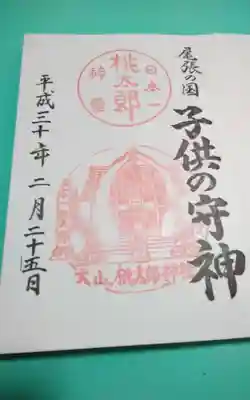 尾張の国
子供の守神
日本一
桃太郎
神霊
犬山 桃太郎神社
平成三十年 二月二十五日